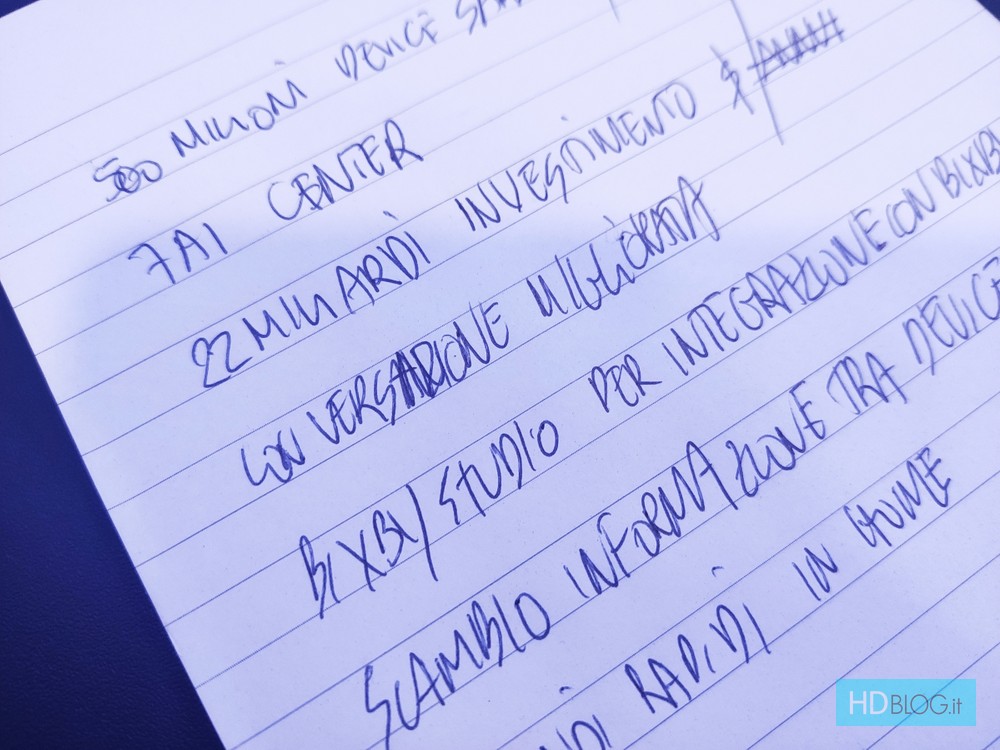 500 MILIONI DEVICE
7 AI CENTER
22 MILIARDI INVESTIMENTO $
CONVERSAZIONE MIGLIORATA
BIXBY STUDIO PER INTEGRAZIONE CON BIXBY
SCAMBIO INFORMAZIONE TRA DEVICE
RAPIDI IN HOME
HDBLOG.it